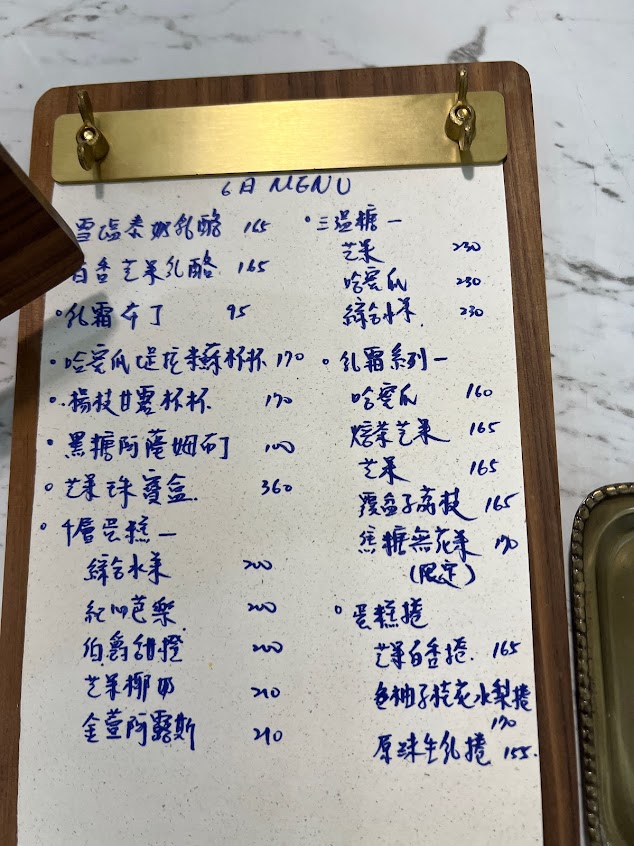 6月MENU
雪鹽泰奶乳酪 165
百香芒果乳酪 165
。乳霜布丁 95
。哈蜜瓜提拉米蘇杯杯 170
。楊枝甘露杯杯 170
。黑糖阿薩姆布丁 100
。芒果珠寶盒 360
。千層蛋糕—
綜合水果 200
紅心芭樂 200
伯爵甜橙 200
芒果椰奶 210
金萱阿露斯 210
。三溫糖—
芒果 230
哈蜜瓜 230
綜合水果 230
。乳霜系列—
哈蜜瓜 160
焙茶芒果 165
芒果 165
覆盆子荔枝 165
焦糖無花果 170
(限定)
。蛋糕捲
芒果百香捲 165
柚子桂花水梨捲
170
原味生乳捲 155.